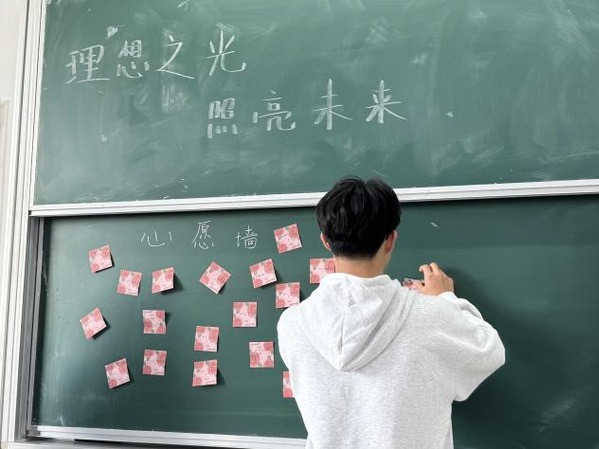 理想之光
照亮未来
心愿墙